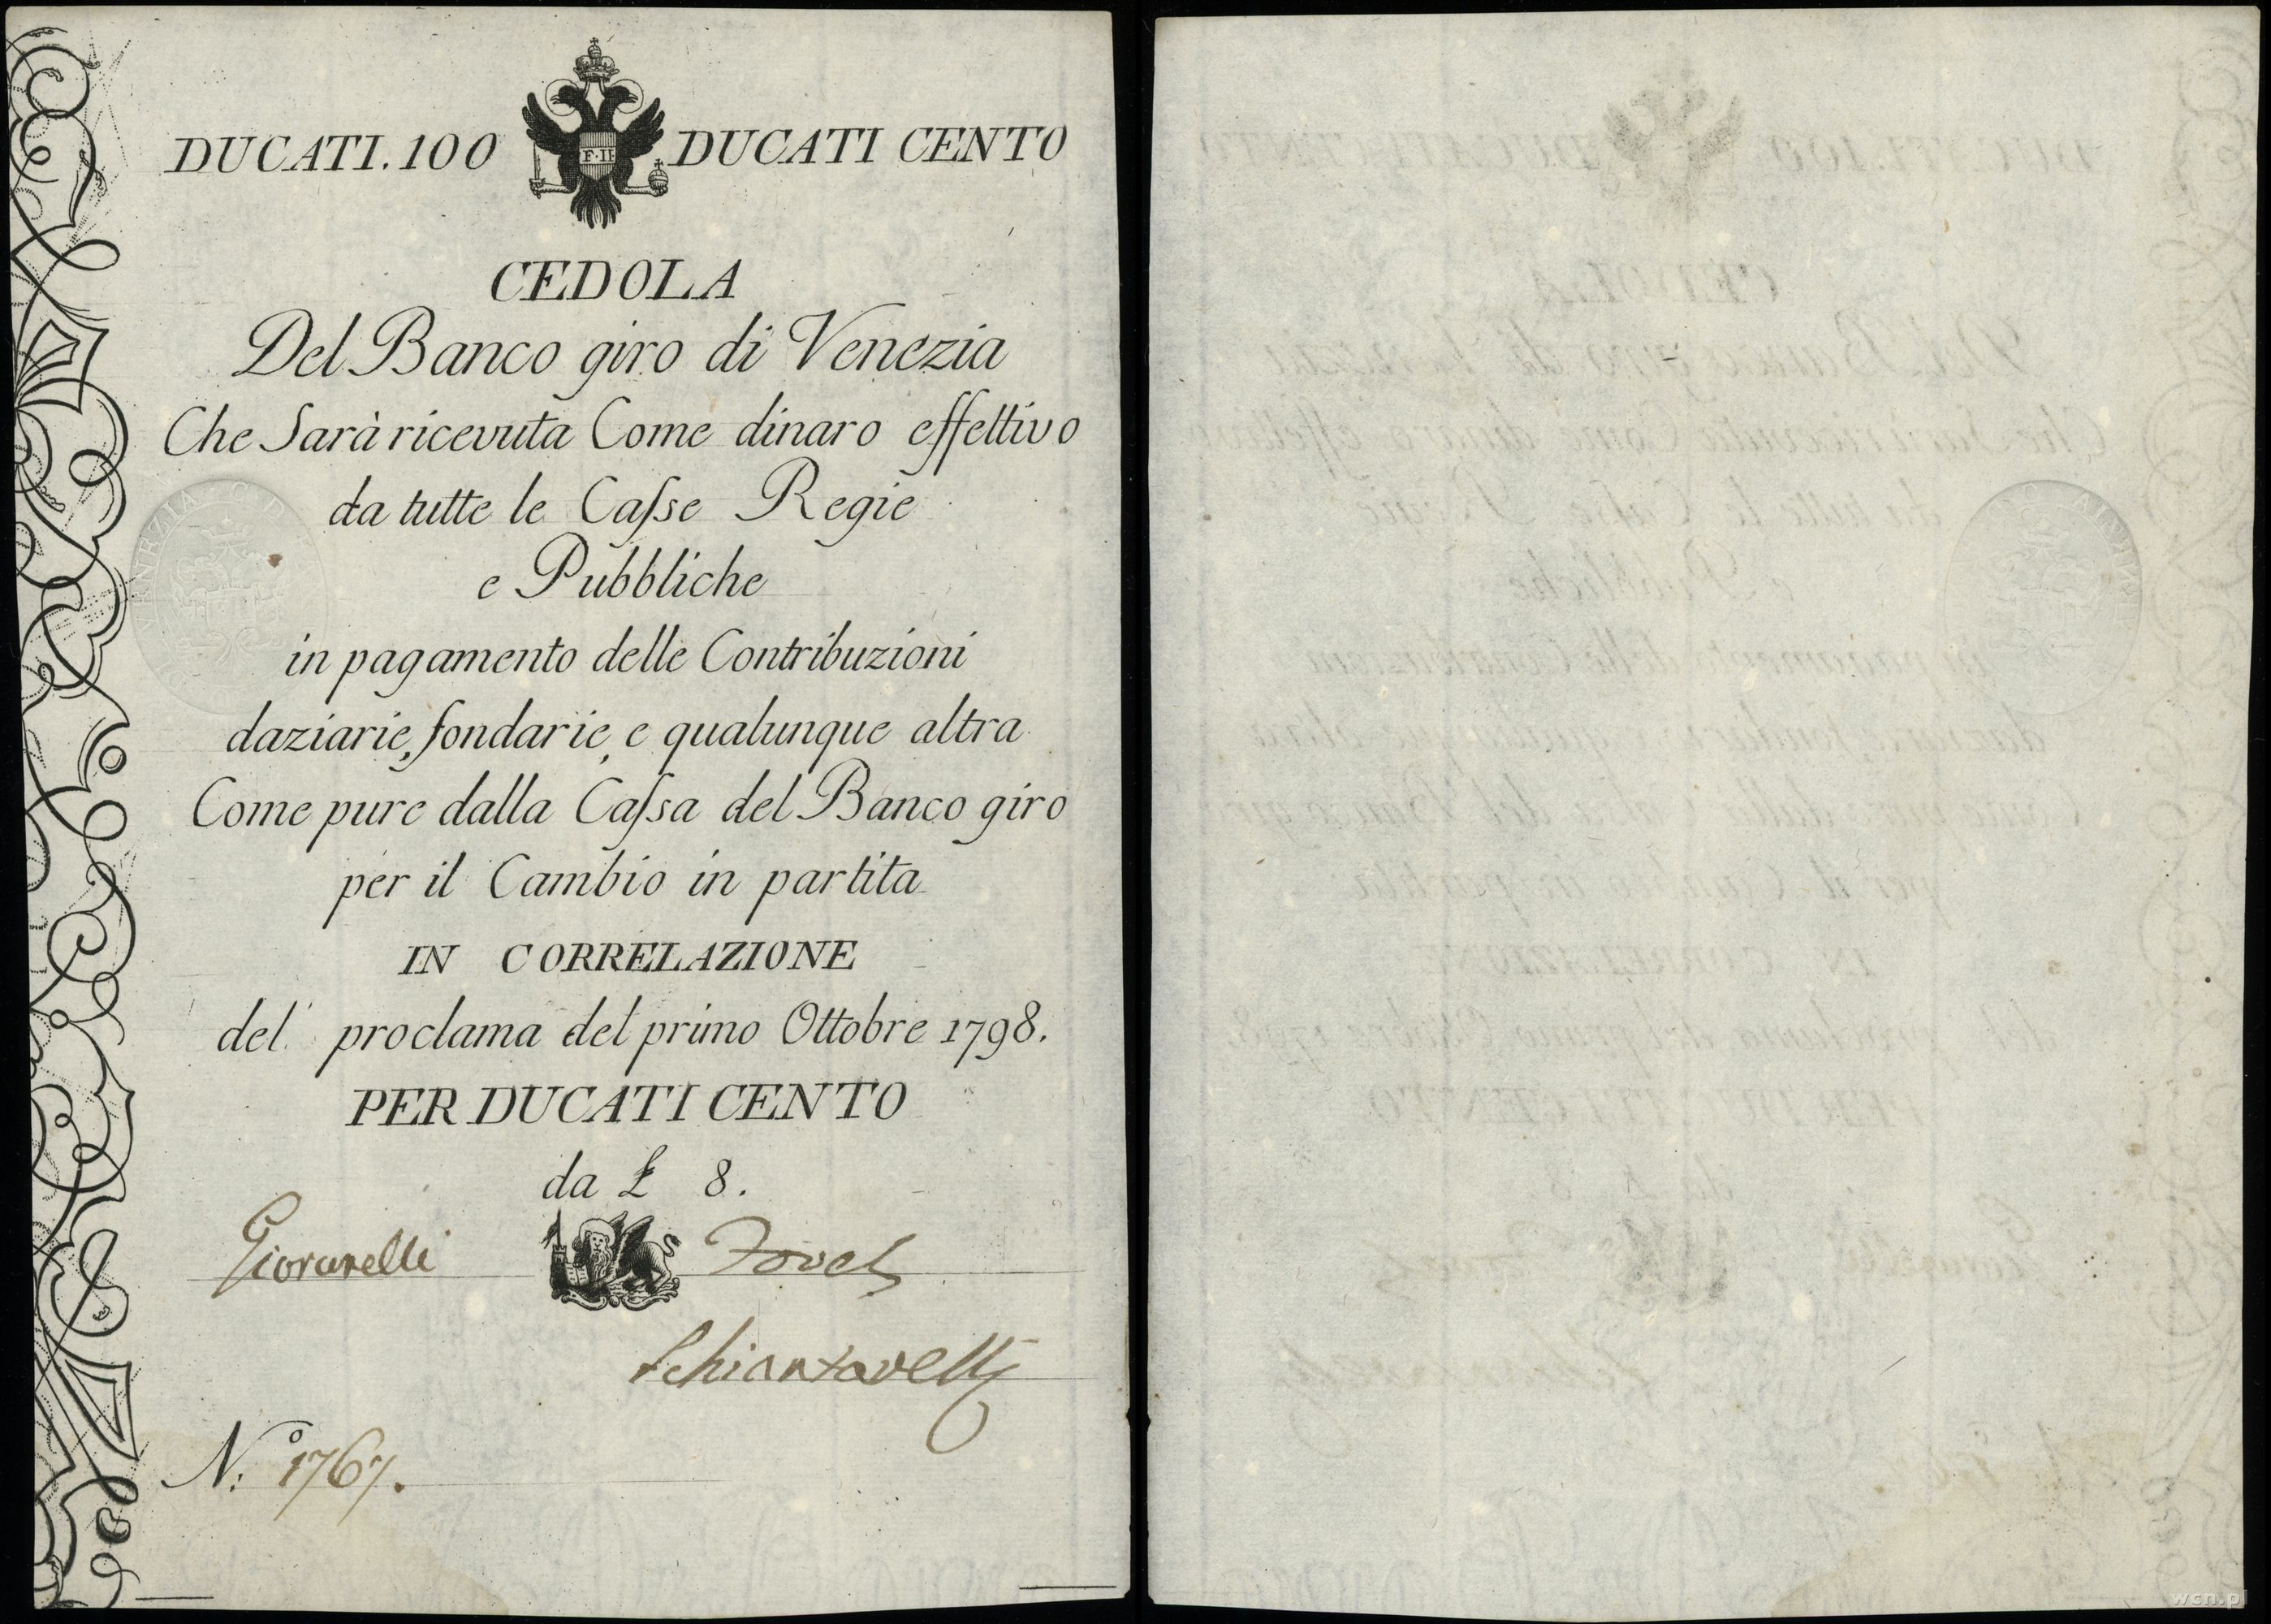 DUCATI. 100 DUCATI CENTO
F·II
CEDOLA
Del Banco giro di Venezia
Che Sarà ricevuta Come dinaro effettivo
da tutte le Caſse Regie
e Pubbliche
in pagamento delle Contribuzioni
daziarie, fondarie, e qualunque altra
Come pure dalla Caſsa del Banco giro
per il Cambio in partita
IN CORRELAZIONE
del proclama del primo Ottobre 1798.
PER DUCATI CENTO
da £ 8.
Giovanelli
N:º 1767.
wcn.pl